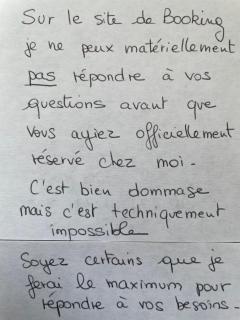 Sur le site de Booking
je ne peux matériellement
pas répondre à vos
questions avant que
vous ayiez officiellement
réservé chez moi -
C'est bien dommage
mais c'est techniquement
impossible
Soyez certains que je
ferai le maximum pour
répondre à vos besoins -